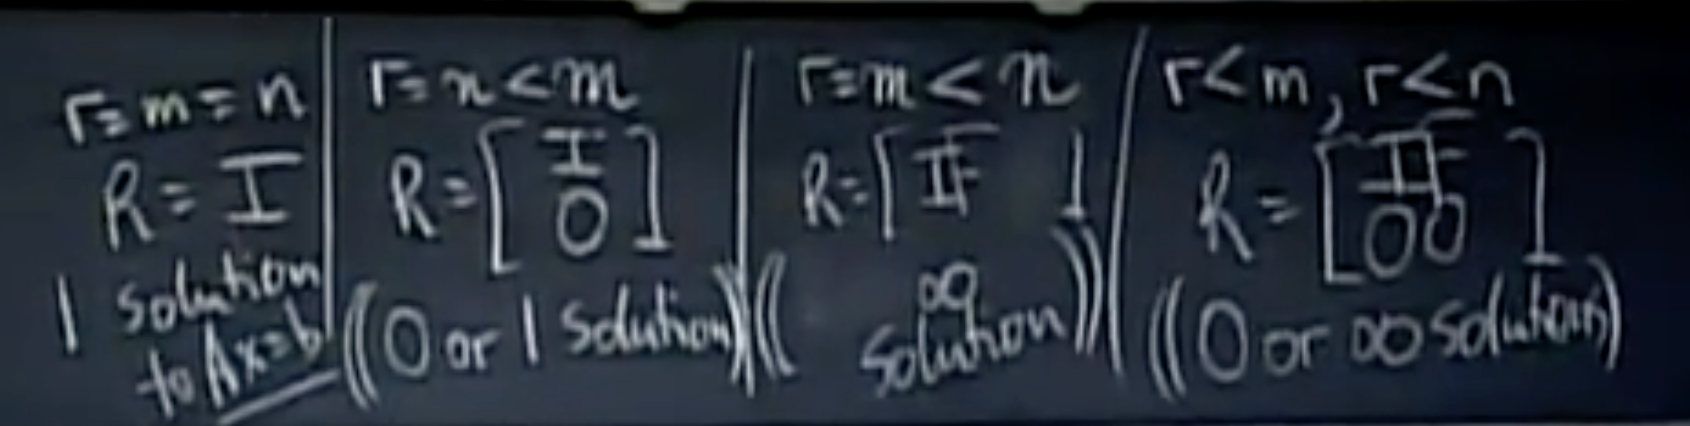 r=m=n
R=I
1 solution
to Ax=b
r=n<m
R=[I
0]
(0 or 1 solution)
r=m<n
R=[IF]
(∞
solution)
r<m, r<n
R=[IF
00]
(0 or ∞ solution)